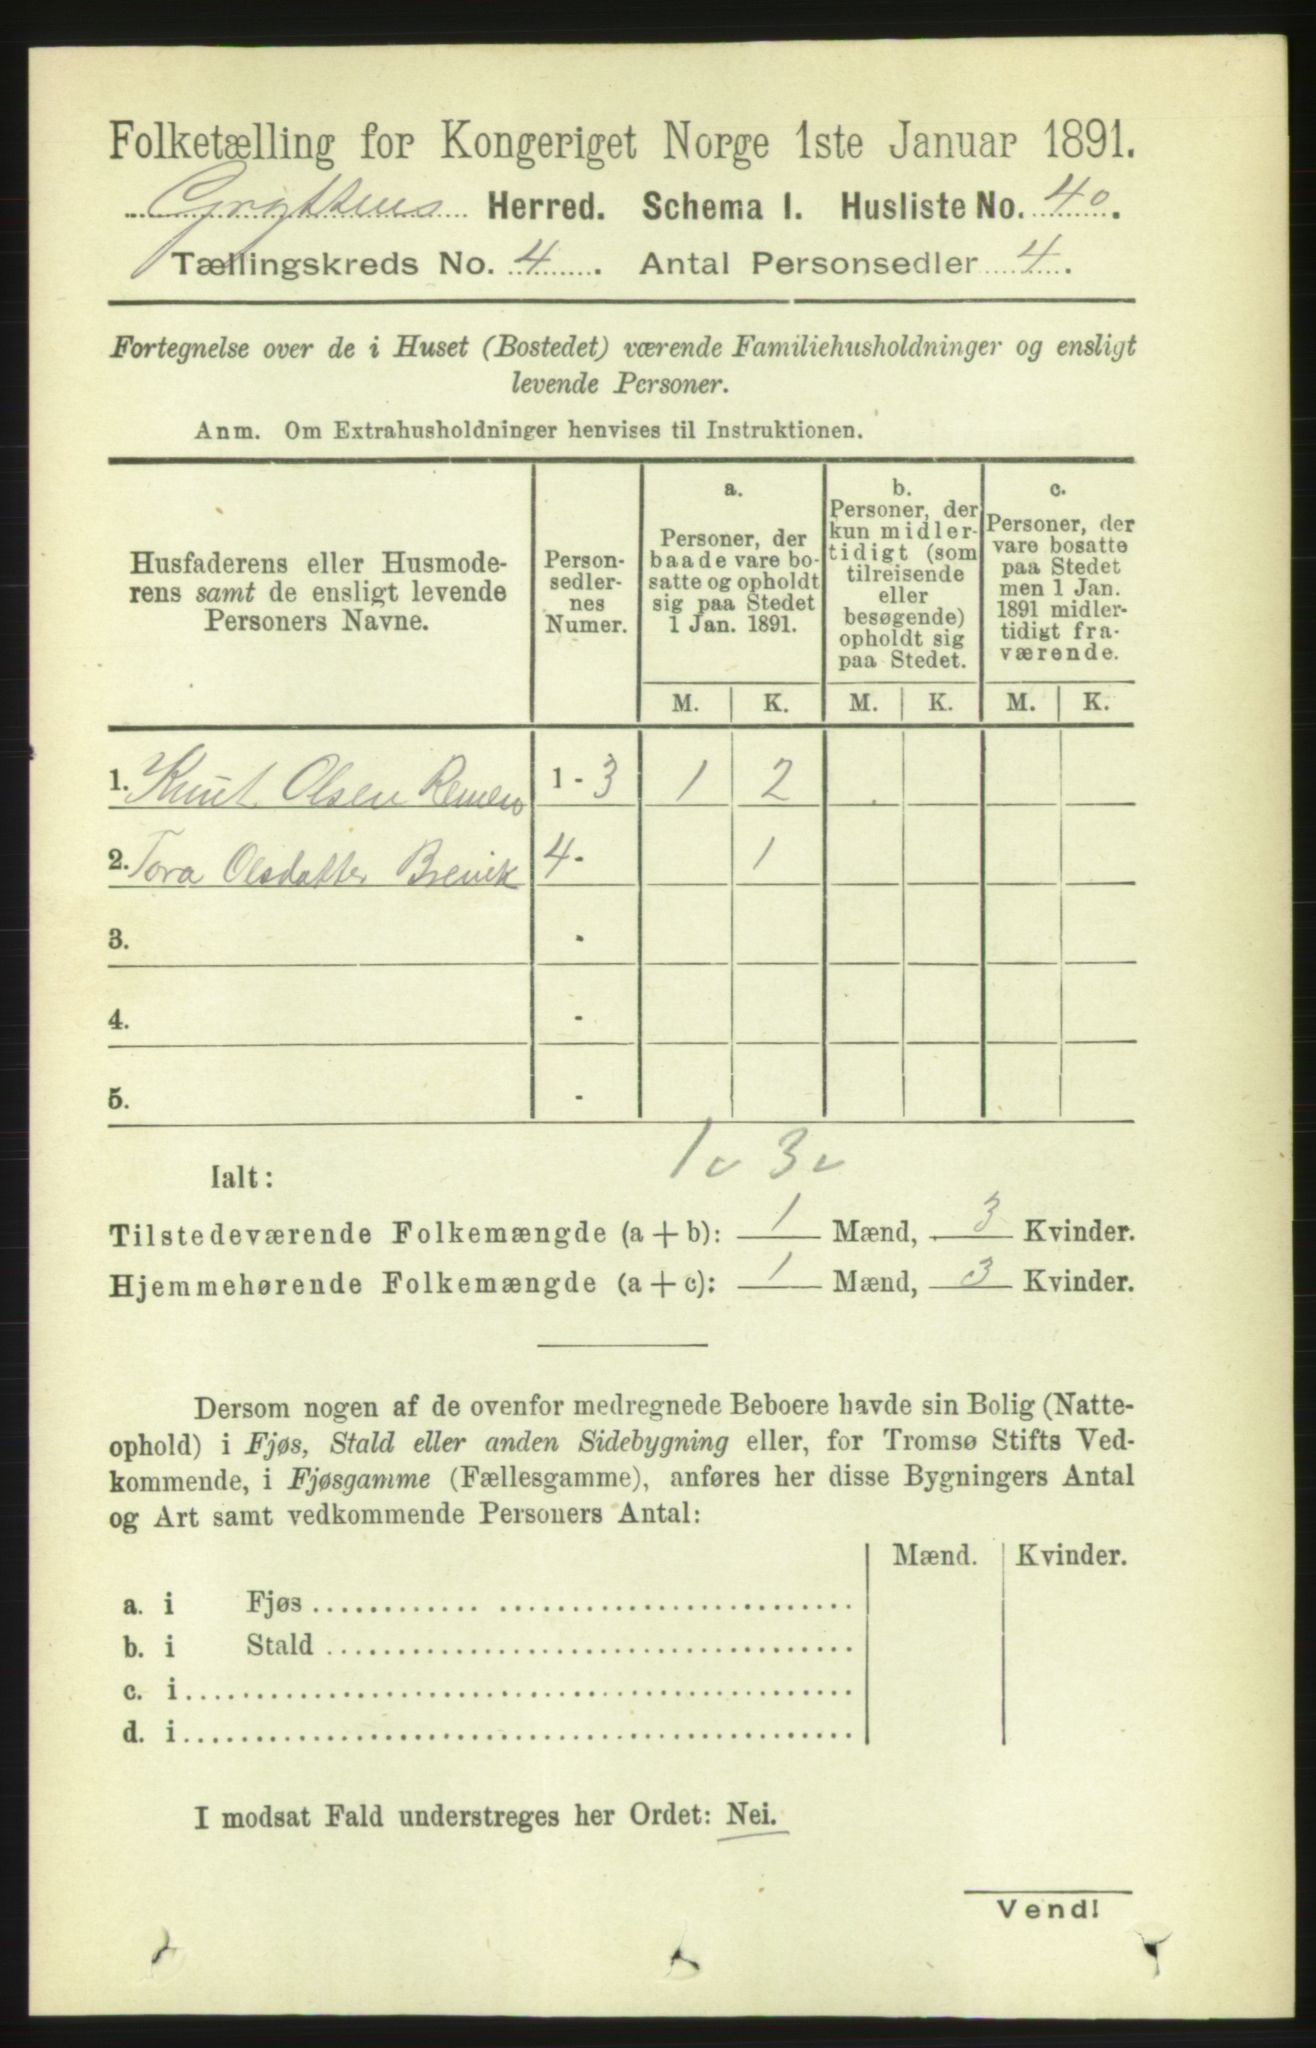 Folketælling for Kongeriget Norge 1ste Januar 1891.
Gryttens Herred. Schema I. Husliste No. 40.
Tællingskreds No. 4. Antal Personsedler 4.
Fortegnelse over de i Huset (Bostedet) værende Familiehusholdninger og ensligt
levende Personer.
Anm. Om Extrahusholdninger henvises til Instruktionen.
Husfaderens eller Husmode-
rens samt de ensligt levende
Personers Navne.
Person-
sedler-
nes
Numer.
a.
Personer, der
baade vare bo-
satte og opholdt
sig paa Stedet
1 Jan. 1891.
b.
Personer, der
kun midler-
tidigt (som
tilreisende
eller
besøgende)
opholdt sig
paa Stedet.
c.
Personer, der
vare bosatte
paa Stedet
men 1 Jan.
1891 midler-
tidigt fra-
værende.
M. K. M. K. M. K.
1. Knut Olsen Remen 1 - 3 1 2
2. Tora Olsdatter Brevik 4 - 1
3. -
4. -
5. -
1 v 3 v
Ialt:
Tilstedeværende Folkemængde (a + b): 1 Mænd, 3 Kvinder.
Hjemmehørende Folkemængde (a + c): 1 Mænd, 3 Kvinder.
Dersom nogen af de ovenfor medregnede Beboere havde sin Bolig (Natte-
ophold) i Fjøs, Stald eller anden Sidebygning eller, for Tromsø Stifts Ved-
kommende, i Fjøsgamme (Fællesgamme), anføres her disse Bygningers Antal
og Art samt vedkommende Personers Antal:
Mænd. Kvinder.
a. i Fjøs
b. i Stald
c. i
d. i
I modsat Fald understreges her Ordet: Nei.
Vend!